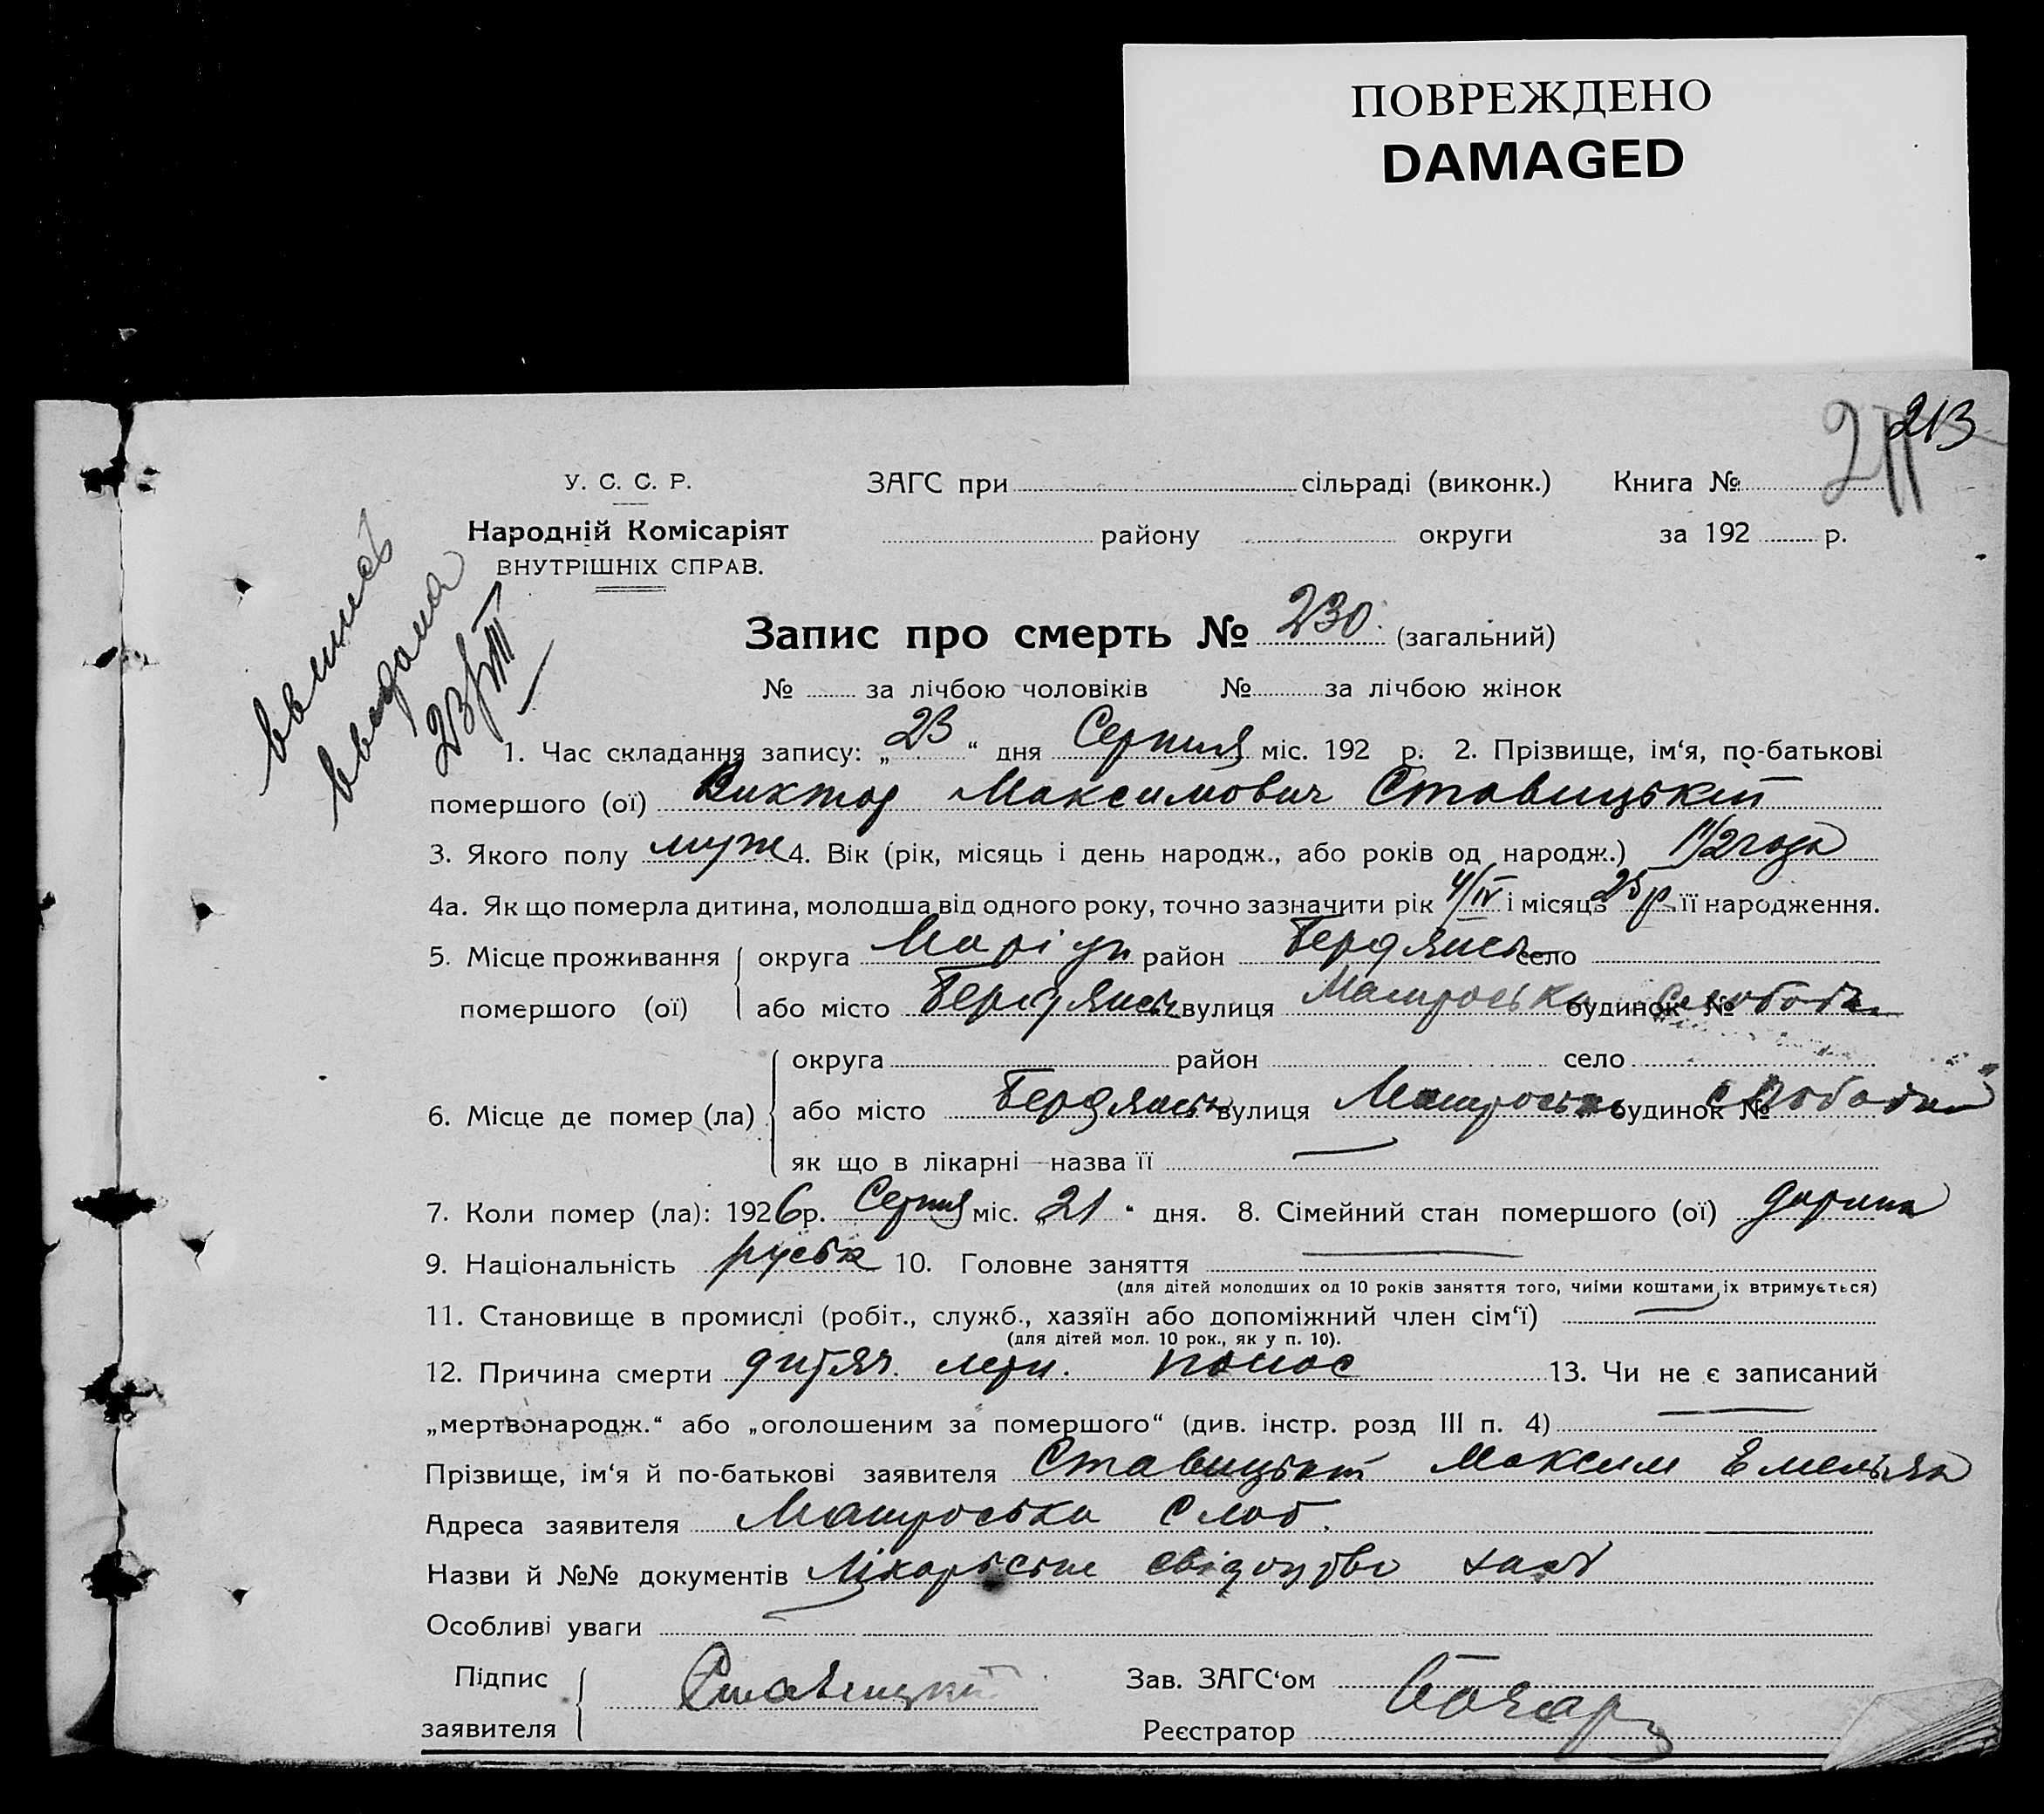 ПОВРЕЖДЕНО
DAMAGED
213
211
У. С. С. Р. ЗАГС при сільраді (виконк.) Книга №
Народній Комісаріят району округи за 192 р.
ВНУТРІШНІХ СПРАВ.
выпись
выдана
23/VIII
Запис про смерть № 230 (загальний)
№ за лічбою чоловіків № за лічбою жінок
1. Час складання запису: „23“ дня Серпня міс. 192 р. 2. Прізвище, ім‘я, по-батькові
помершого (ої) Виктор Максимович Ставицький
3. Якого полу муж 4. Вік (рік, місяць і день народж., або років од народж.) 1 1/2 года
4а. Як що померла дитина, молодша від одного року, точно зазначити рік 4/IV і місяць 25 р. її народження.
5. Місце проживання округа Маріуп район Бердянськ село
помершого (ої) або місто Бердянськ вулиця Матроська будинок № Слободка
округа район село
6. Місце де помер (ла) або місто Бердянськ вулиця Матроська будинок № слободка
як що в лікарні—назва її
7. Коли помер (ла): 1926 р. Серпня міс. „21“ дня. 8. Сімейний стан помершого (ої) дитина
9. Національність руська 10. Головне заняття
(для дітей молодших од 10 років заняття того, чиїми коштами їх втримується)
11. Становище в промислі (робіт., служб., хазяїн або допоміжний член сім‘ї)
(для дітей мол. 10 рок., як у п. 10).
12. Причина смерти дитяч. летн. понос 13. Чи не є записаний
„мертвонародж.“ або „оголошеним за помершого“ (див. інстр. розд III п. 4)
Прізвище, ім‘я й по-батькові заявителя Ставицький Максим Емельян
Адреса заявителя Матроська Слоб.
Назви й №№ документів Лікарьске свідоцтво
Особливі уваги
Підпис Ставицкий Зав. ЗАГС‘ом
заявителя Реєстратор